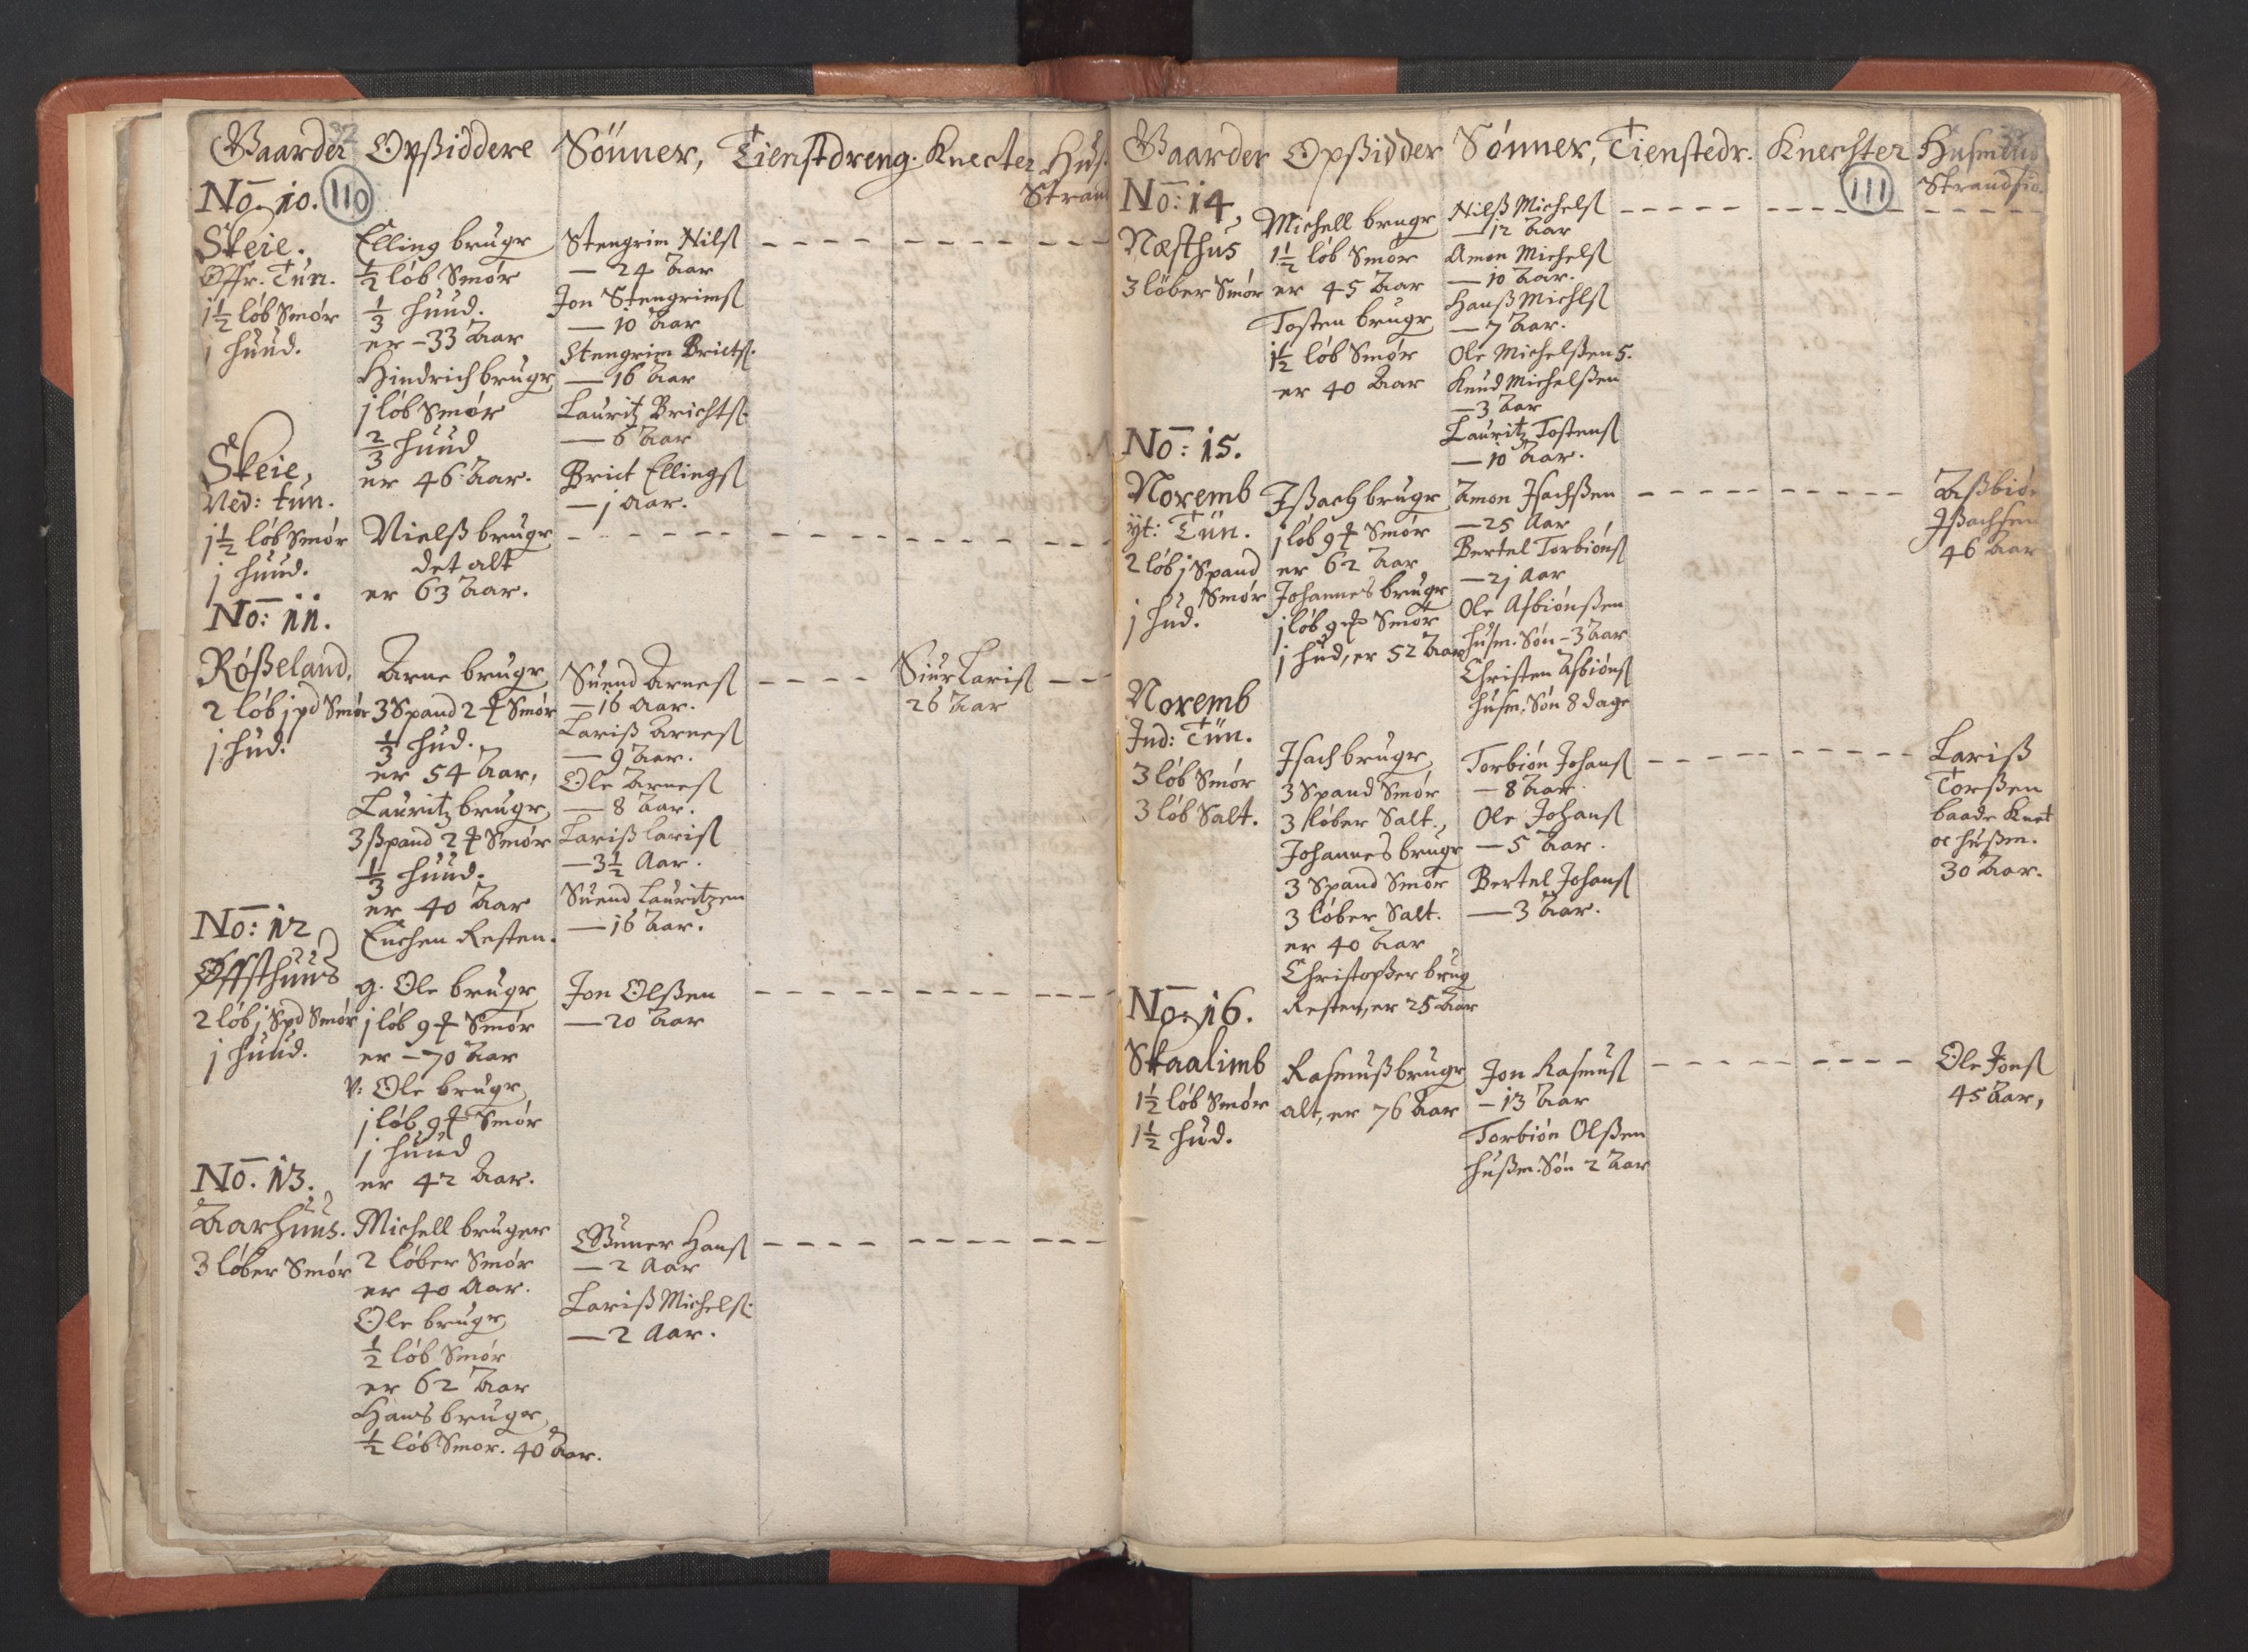 Gaarder Opßiddere Sönner, Tienstdreng. Knecter Huß
Stran
No. 10. 110
Skeie.
Offr. Tun.
1½ löb Smör
1 huud.
Elling brugr
½ löb Smör
⅓ huud.
er - 33 Aar
Hindrich brugr
j löb Smör
⅔ huud
er 46 Aar.
Stengrim Nilsß
— 24 Aar
Jon Stengrimsß
— 10 Aar
Stengrim Brictsß.
— 16 Aar
Lauritz Brichtsß.
— 6 Aar
Brict Ellingsß
— j aar.
Skeie,
Ned: tun.
1½ löb Smör
j huud.
Nielß brugr
det alt
er 63 Aar.
No: 11.
Rößeland,
2 löb j pd Smör
j hud.
Arne brugr
3 Spand 2 ⚖ Smör
⅓ hud.
er 54 Aar,
Lauritz brugr
3 ßpand 2 ⚖ Smör
⅓ huud.
er 40 Aar
Enchen Resten.
Suend Arnesß
— 16 Aar.
Lariß Arnesß
— 9 Aar.
Ole Arnesß
— 8 Aar.
Lariß larisß
— 3½ Aar.
Suend Lauritzen
— 16 Aar.
Siur Larisß
26 Aar
No: 12
Øffsthuus
2 löb j Spd Smör
j huud.
g. Ole brugr
j löb 9 ⚖ Smör
er - 70 Aar
v: Ole brugr
j löb 9 ⚖ Smör
j huud
er 42 Aar.
Jon Olßen
— 20 Aar
No. 13.
Aarhuus.
3 löber Smör
Michell bruger
2 löber Smör
er 40 Aar.
Ole brugr
½ löb Smör
er 62 Aar
Hans brugr
½ löb Smor. 40 Aar.
Guner Hansß
— 2 Aar
Lariß Michelsß.
— 2 Aar.
Gaarder Opßidder Sönner, Tienstedr. Knechter Husmend
111 Strandsid.
No: 14,
Næsthus
3 löber Smör
Michell brugr
1½ löb Smör
er 45 Aar
Tosten brugr
1½ löb Smör
er 40 Aar
Nilß Michelsß
— 12 Aar
Amon Michelsß
— 10 Aar.
Hanß Michlsß
— 7 Aar.
Ole Michelßen 5.
Knud Michelßen
— 3 Aar
Lauritz Tostensß
— 10 Aar.
No: 15.
Noremb
yt: Tün.
2 löb j Spand
Smör
j hud.
Jßach brugr
j löb 9 ⚖ Smör
er 62 Aar
Johannes brugr
j löb 9 ⚖ Smör
j hud, er 52 Aar
Amon Jsachßen
— 25 Aar
Bertel Torbiönsß
— 21 Aar
Ole Asbiönßen
husm. Sön - 3 Aar
Christen Asbiönsß
husm. Sön 8 dage
Aßbiö
Jßachsen
46 Aar
Noremb
Ind: Tün.
3 löb Smör
3 löb Salt.
Jsach brugr
3 Spand Smör
3 löber Salt.,
Johannes brugr
3 Spand Smör
3 löber Salt.
er 40 Aar
Christopher brug
Resten, er 25 Aar
Torbiön Johansß
— 8 Aar.
Ole Johansß
— 5 Aar.
Bertel Johansß
— 3 Aar.
Lariß
Torßen
baade Knet
oc hußm.
30 Aar.
No: 16.
Skaalimb
1½ löb Smör
1½ hud.
Rasmuß brugr
alt, er 76 Aar
Jon Rasmusß
— 13 Aar
Torbiön Olßen
hußm. Sön 2 Aar
Ole Jonsß
45 Aar,